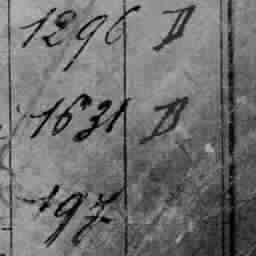 1296 D
1631 B
197